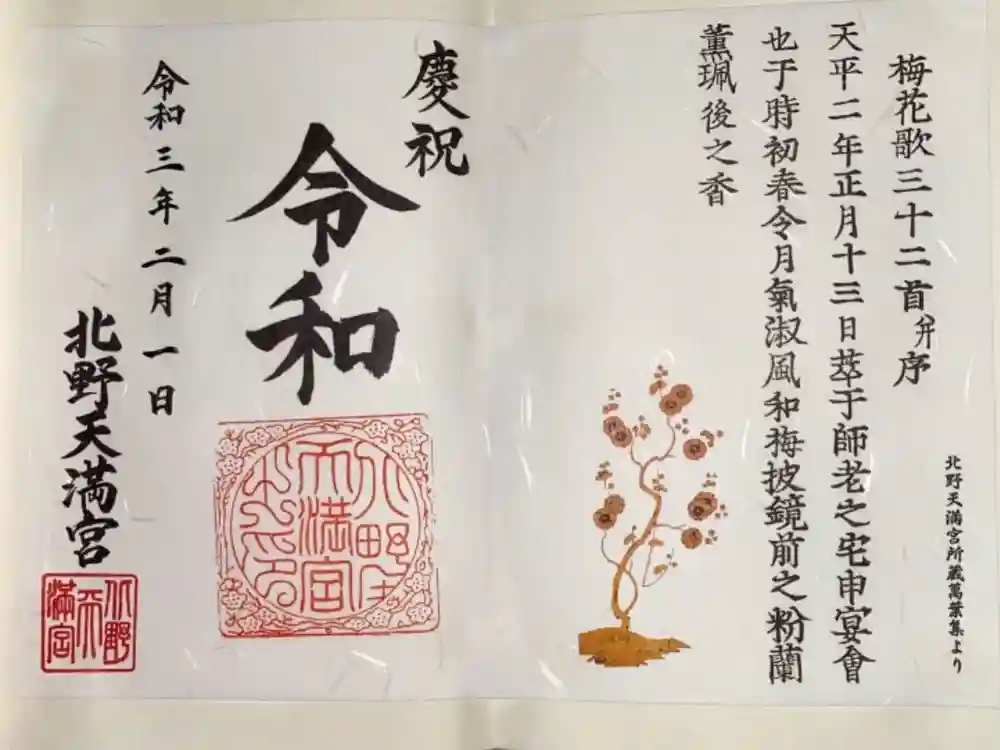 北野天満宮所蔵萬葉集より
梅花歌三十二首并序
天平二年正月十三日萃于師老之宅申宴會
也于時初春令月氣淑風和梅披鏡前之粉蘭
薫珮後之香
慶祝
令和
令和三年二月一日
北野天満宮
北野
天
滿宮